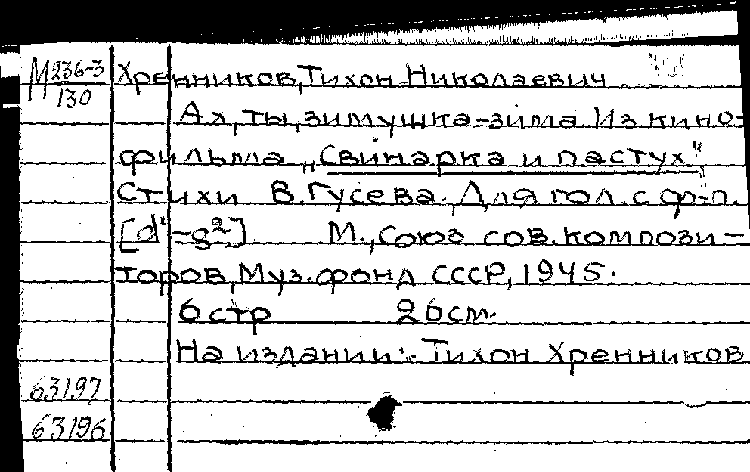 М236-3
130
Хренников, Тихон Николаевич
Ах, ты, зимушка-зима Из кино-
фильма „Свинарка и пастух".
Стихи В. Гусева. Для гол. с ф-п.
[d¹-g²] М., Союз сов. компози-
торов, Муз. фонд СССР, 1945.
6 стр 26 см.
На издании: Тихон Хренников
63197
63196